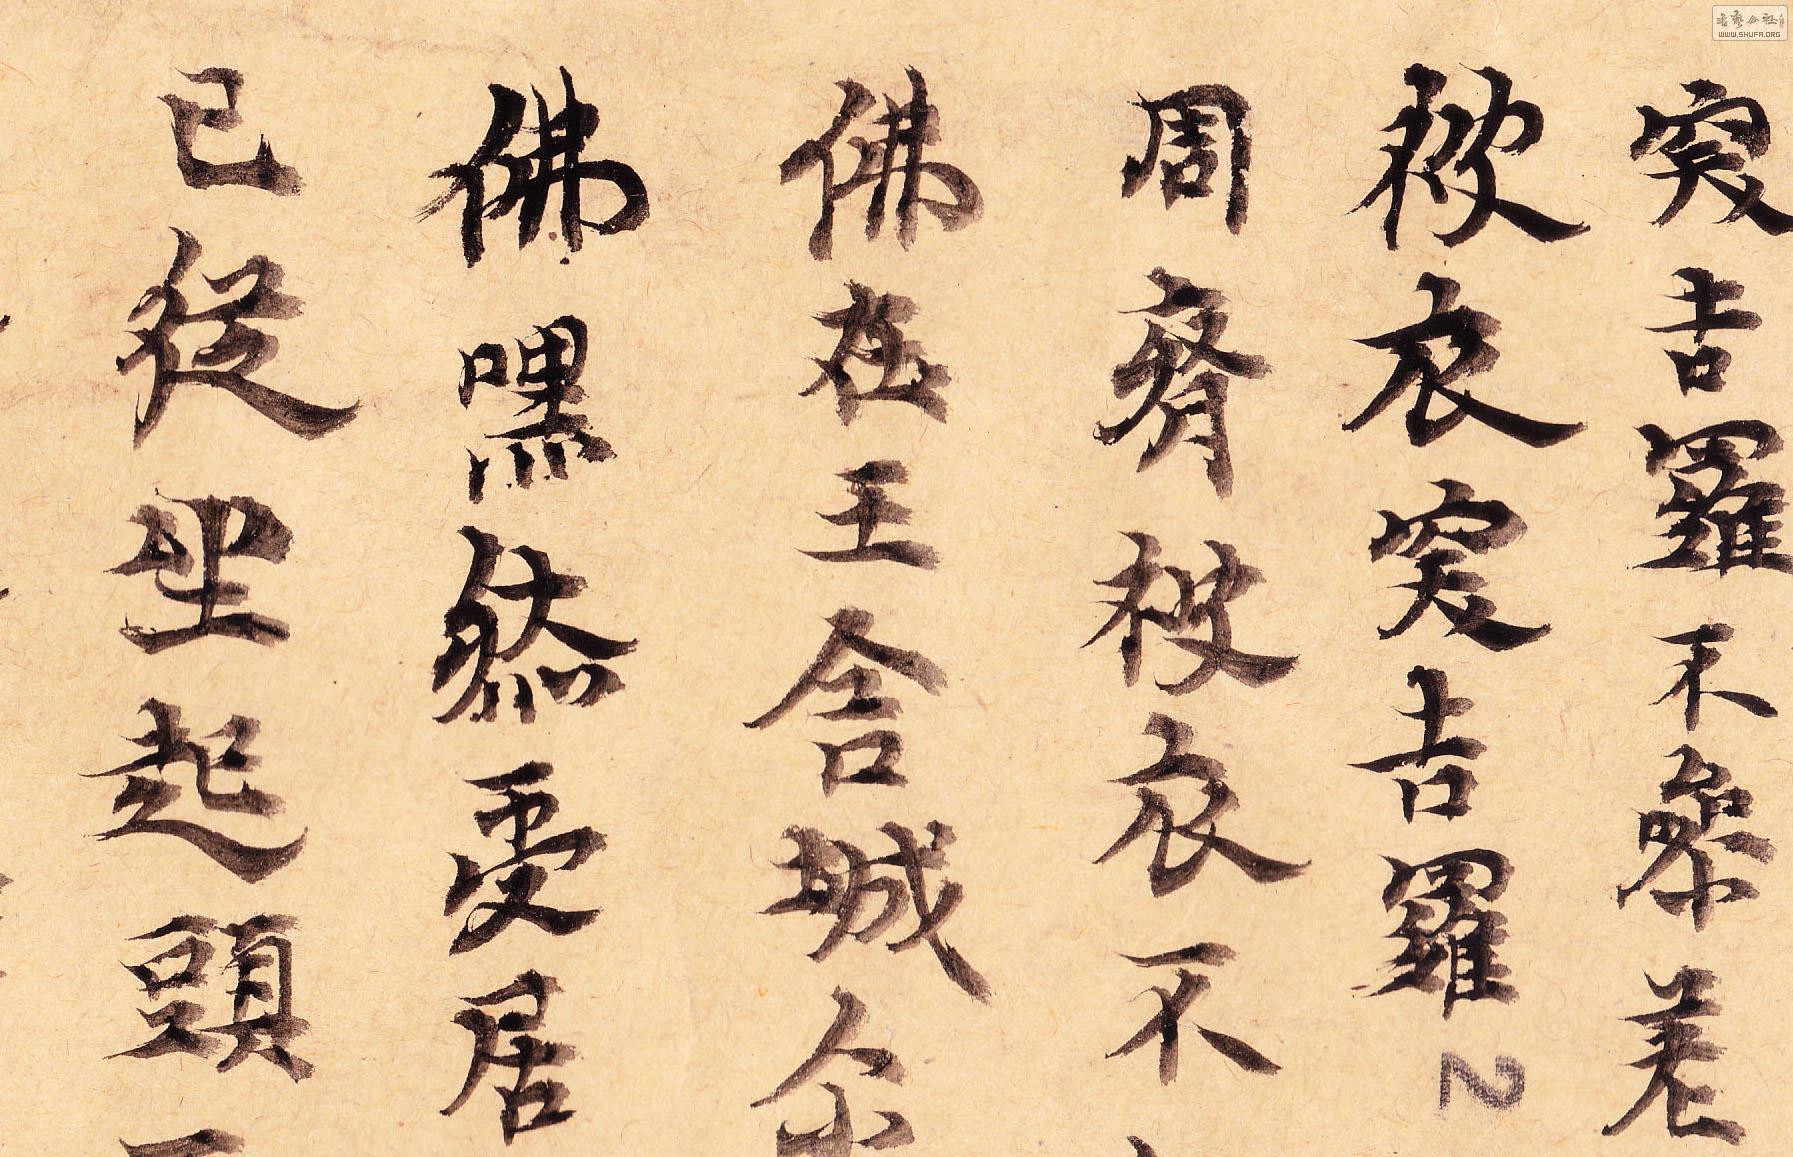 突吉羅不參差
被衣突吉羅
2
周齊被衣不
佛在王舍城尒
佛嘿然受居
已從坐起頭
書藝公社
WWW.SHUFA.ORG